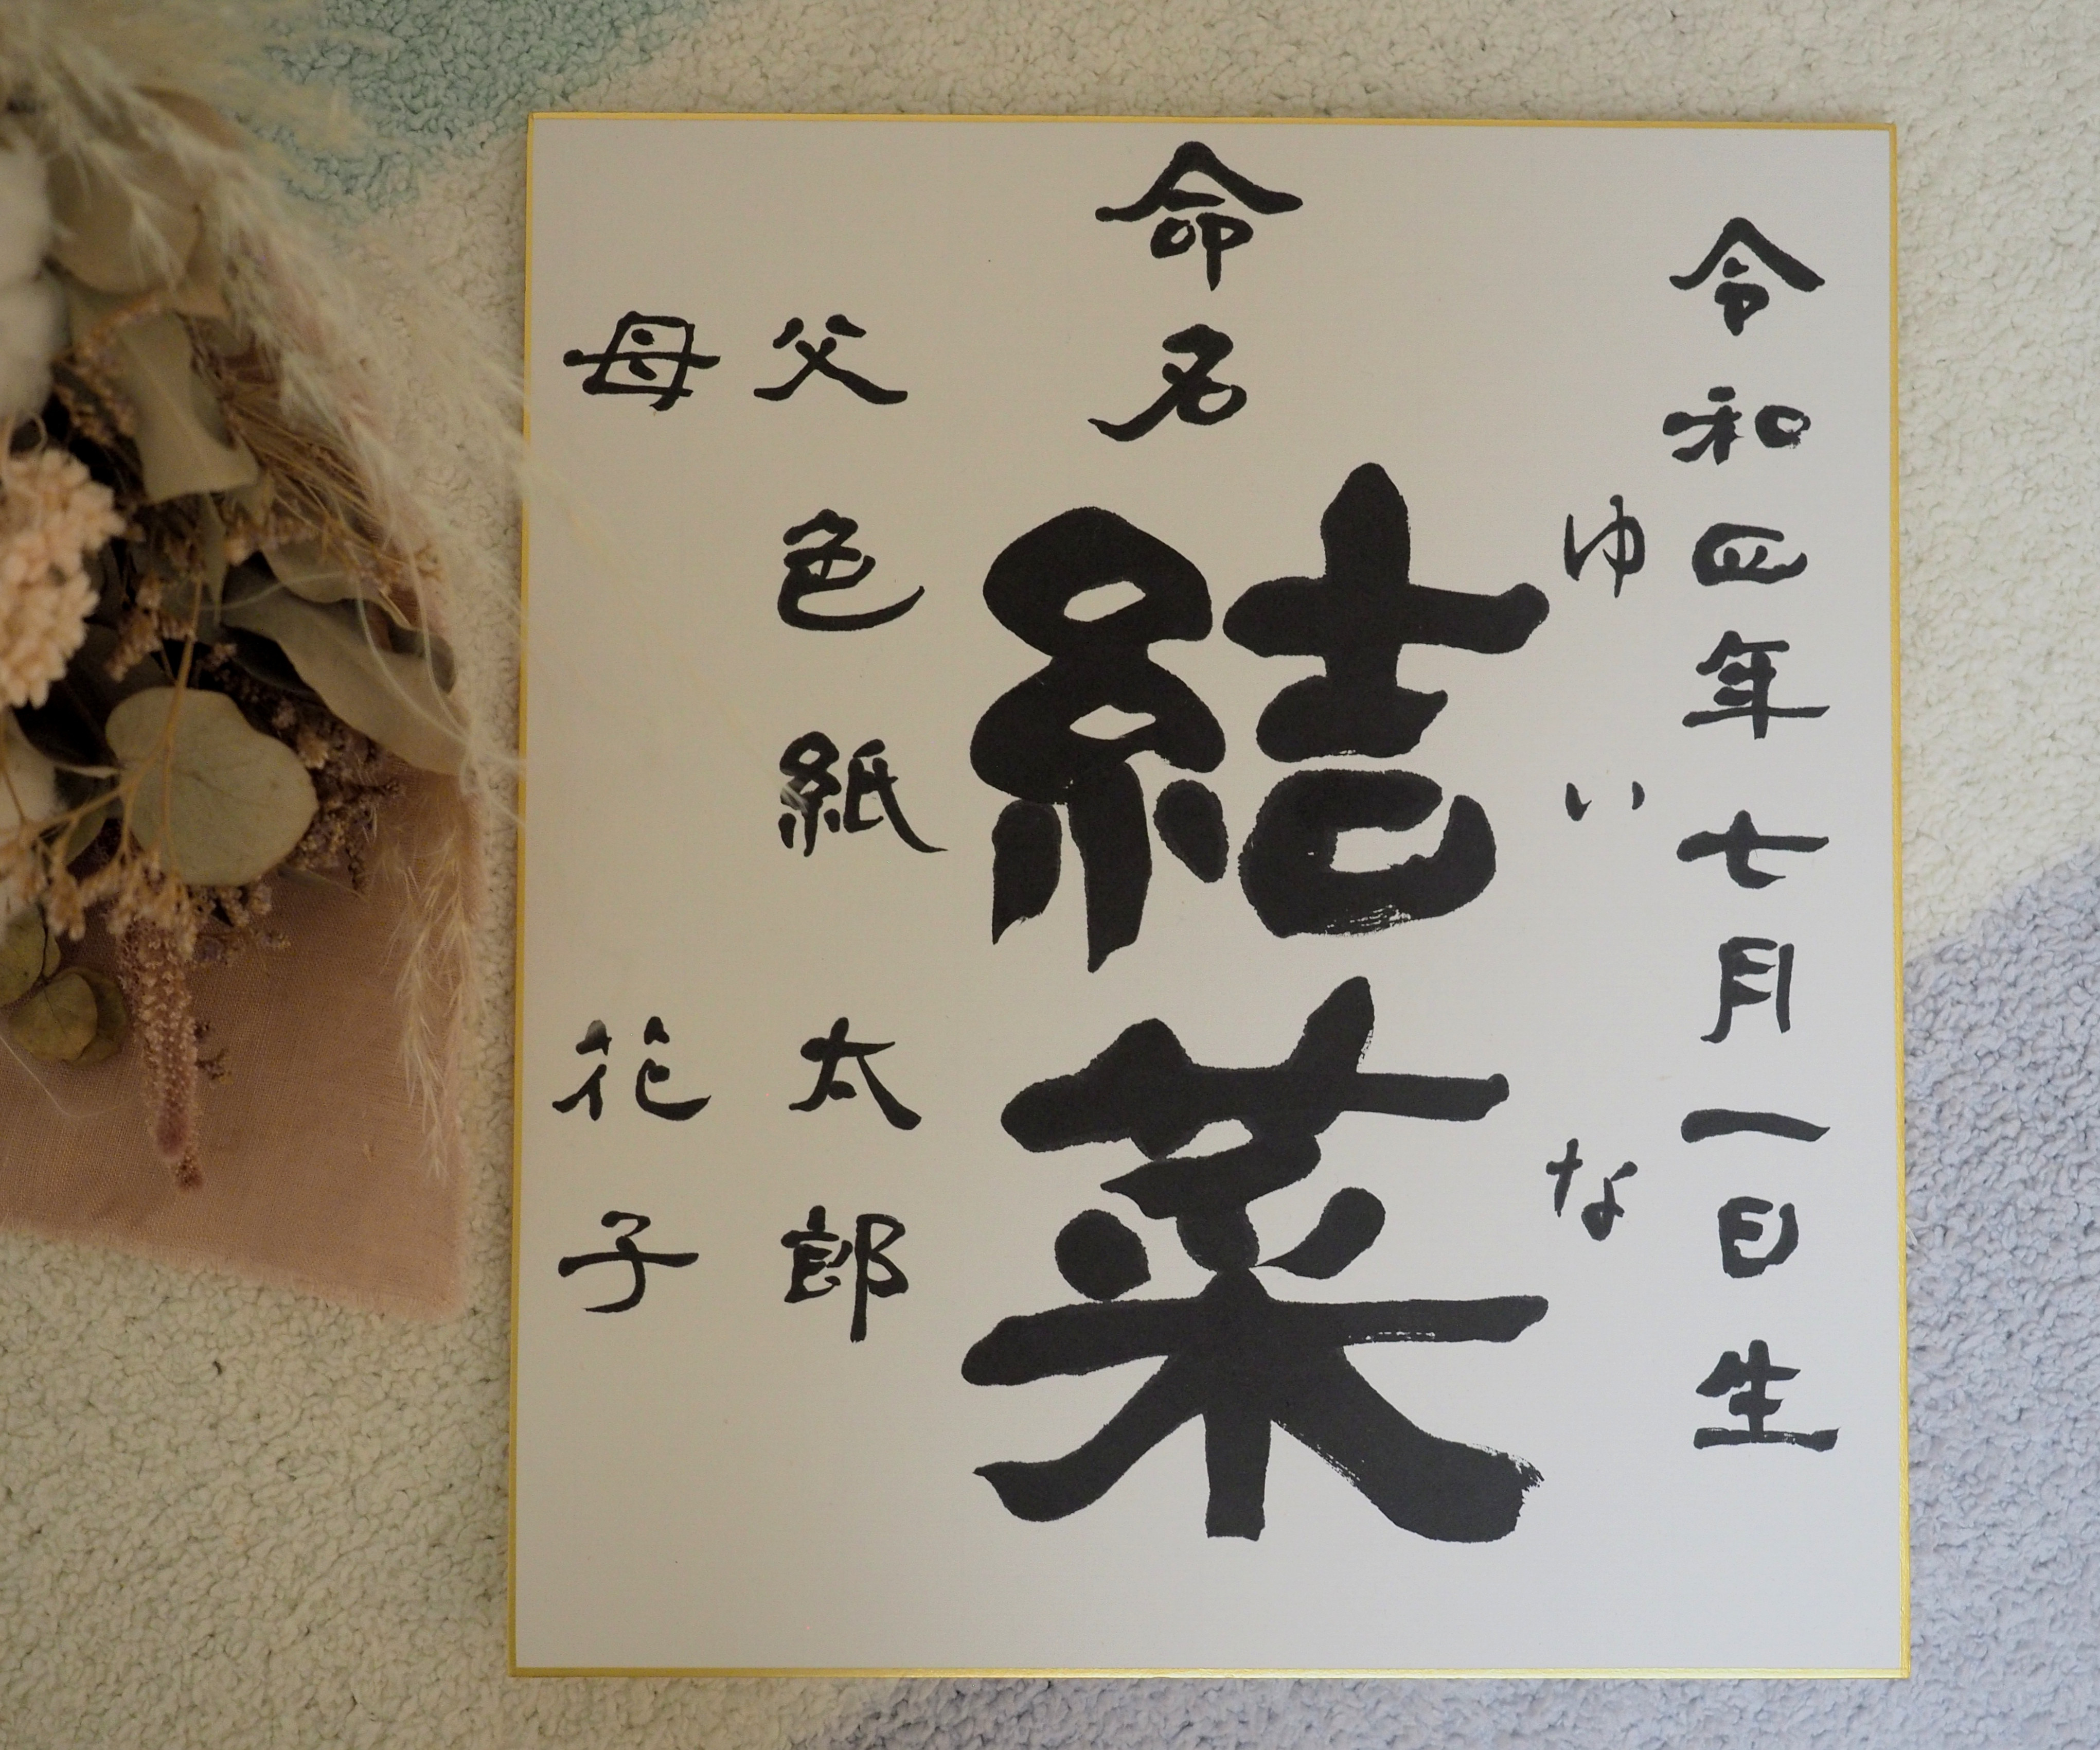 令和四年七月一日生
ゆいな
命名 結菜
父 色紙 太郎
母 花子